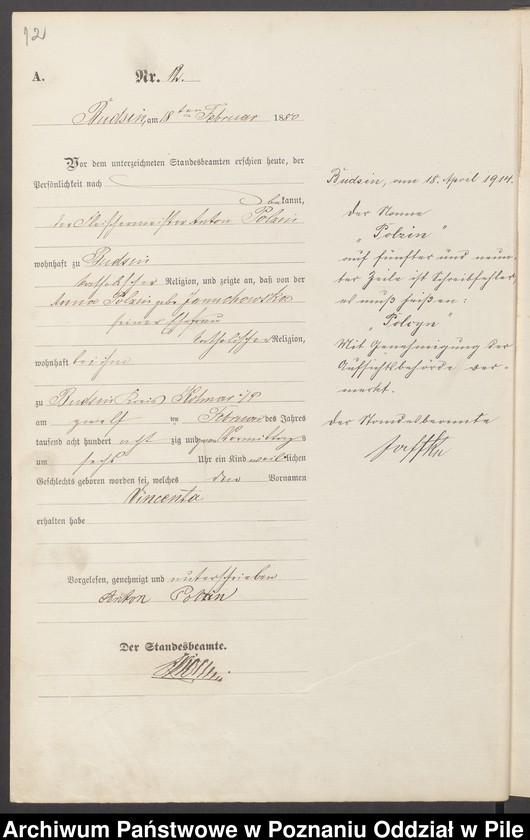 12
A.
Nr. 12.
Budsin, am 18ten Februar 1880
Vor dem unterzeichneten Standesbeamten erschien heute, der
Persönlichkeit nach
bekannt,
der Fleischermeister Anton Polzin
wohnhaft zu Budsin
katholischer Religion, und zeigte an, daß von der
Anna Polzin geb. Januchowska
seiner Ehefrau
katholischer Religion,
wohnhaft bei ihm
zu Budsin Kreis Kolmar i/P
am zwölf ten Februar des Jahres
tausend acht hundert acht zig und Vormittags
um sechs Uhr ein Kind weiblichen
Geschlechts geboren worden sei, welches den Vornamen
Vincenta
erhalten habe
Vorgelesen, genehmigt und unterschrieben
Anton Polzin
Der Standesbeamte.
Budsin, am 18. April 1914.
Der Name
"Polzin"
auf fünfter und neun-
ter Zeile ist Schreibfehler,
es muß heißen:
"Polcyn"
Mit Genehmigung der
Aufsichtsbehörde ver-
merkt.
Der Standesbeamte
Archiwum Państwowe w Poznaniu Oddział w Pile